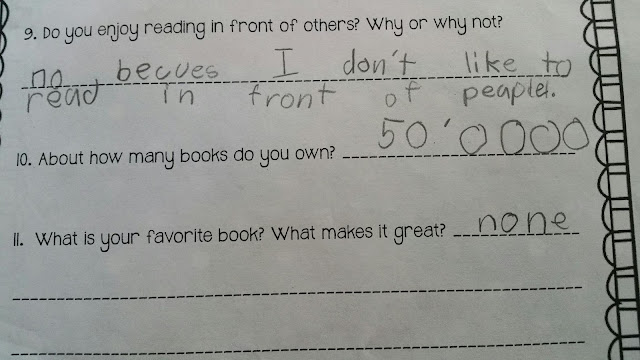 9. Do you enjoy reading in front of others? Why or why not?
no becues I don't like to
read in front of peaplel.
10. About how many books do you own? 50'0000
11. What is your favorite book? What makes it great? none